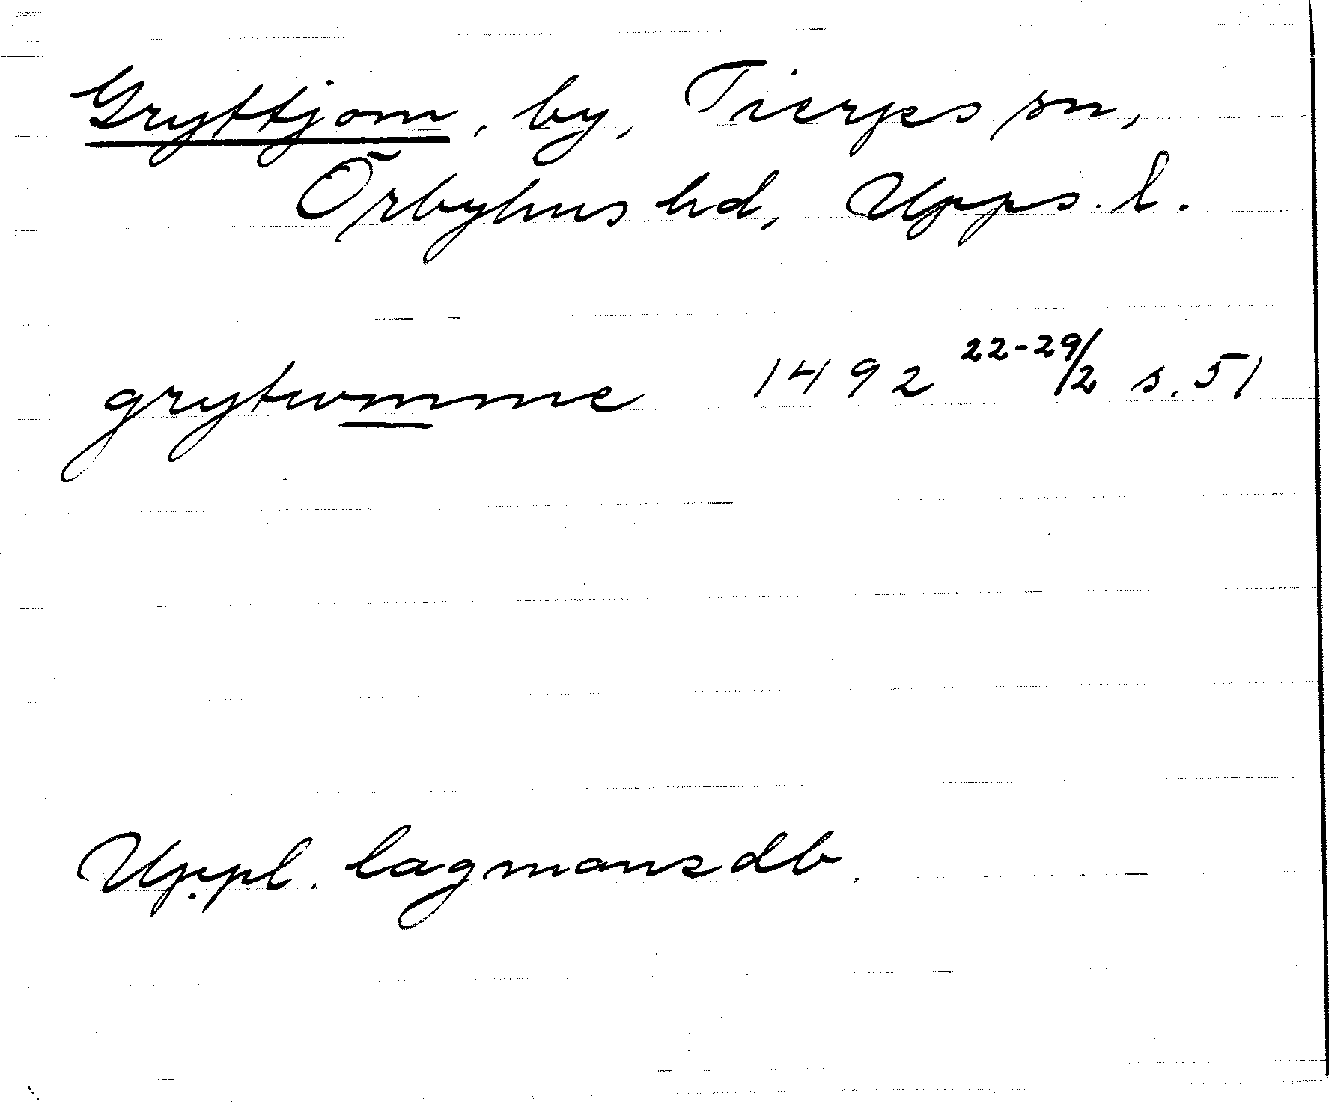 Gryttjom, by, Tierps sn,
Örbyhus hd, Upps. l.
grytwmme 1492 22-29/2 s. 51
Uppl. lagmansdb.